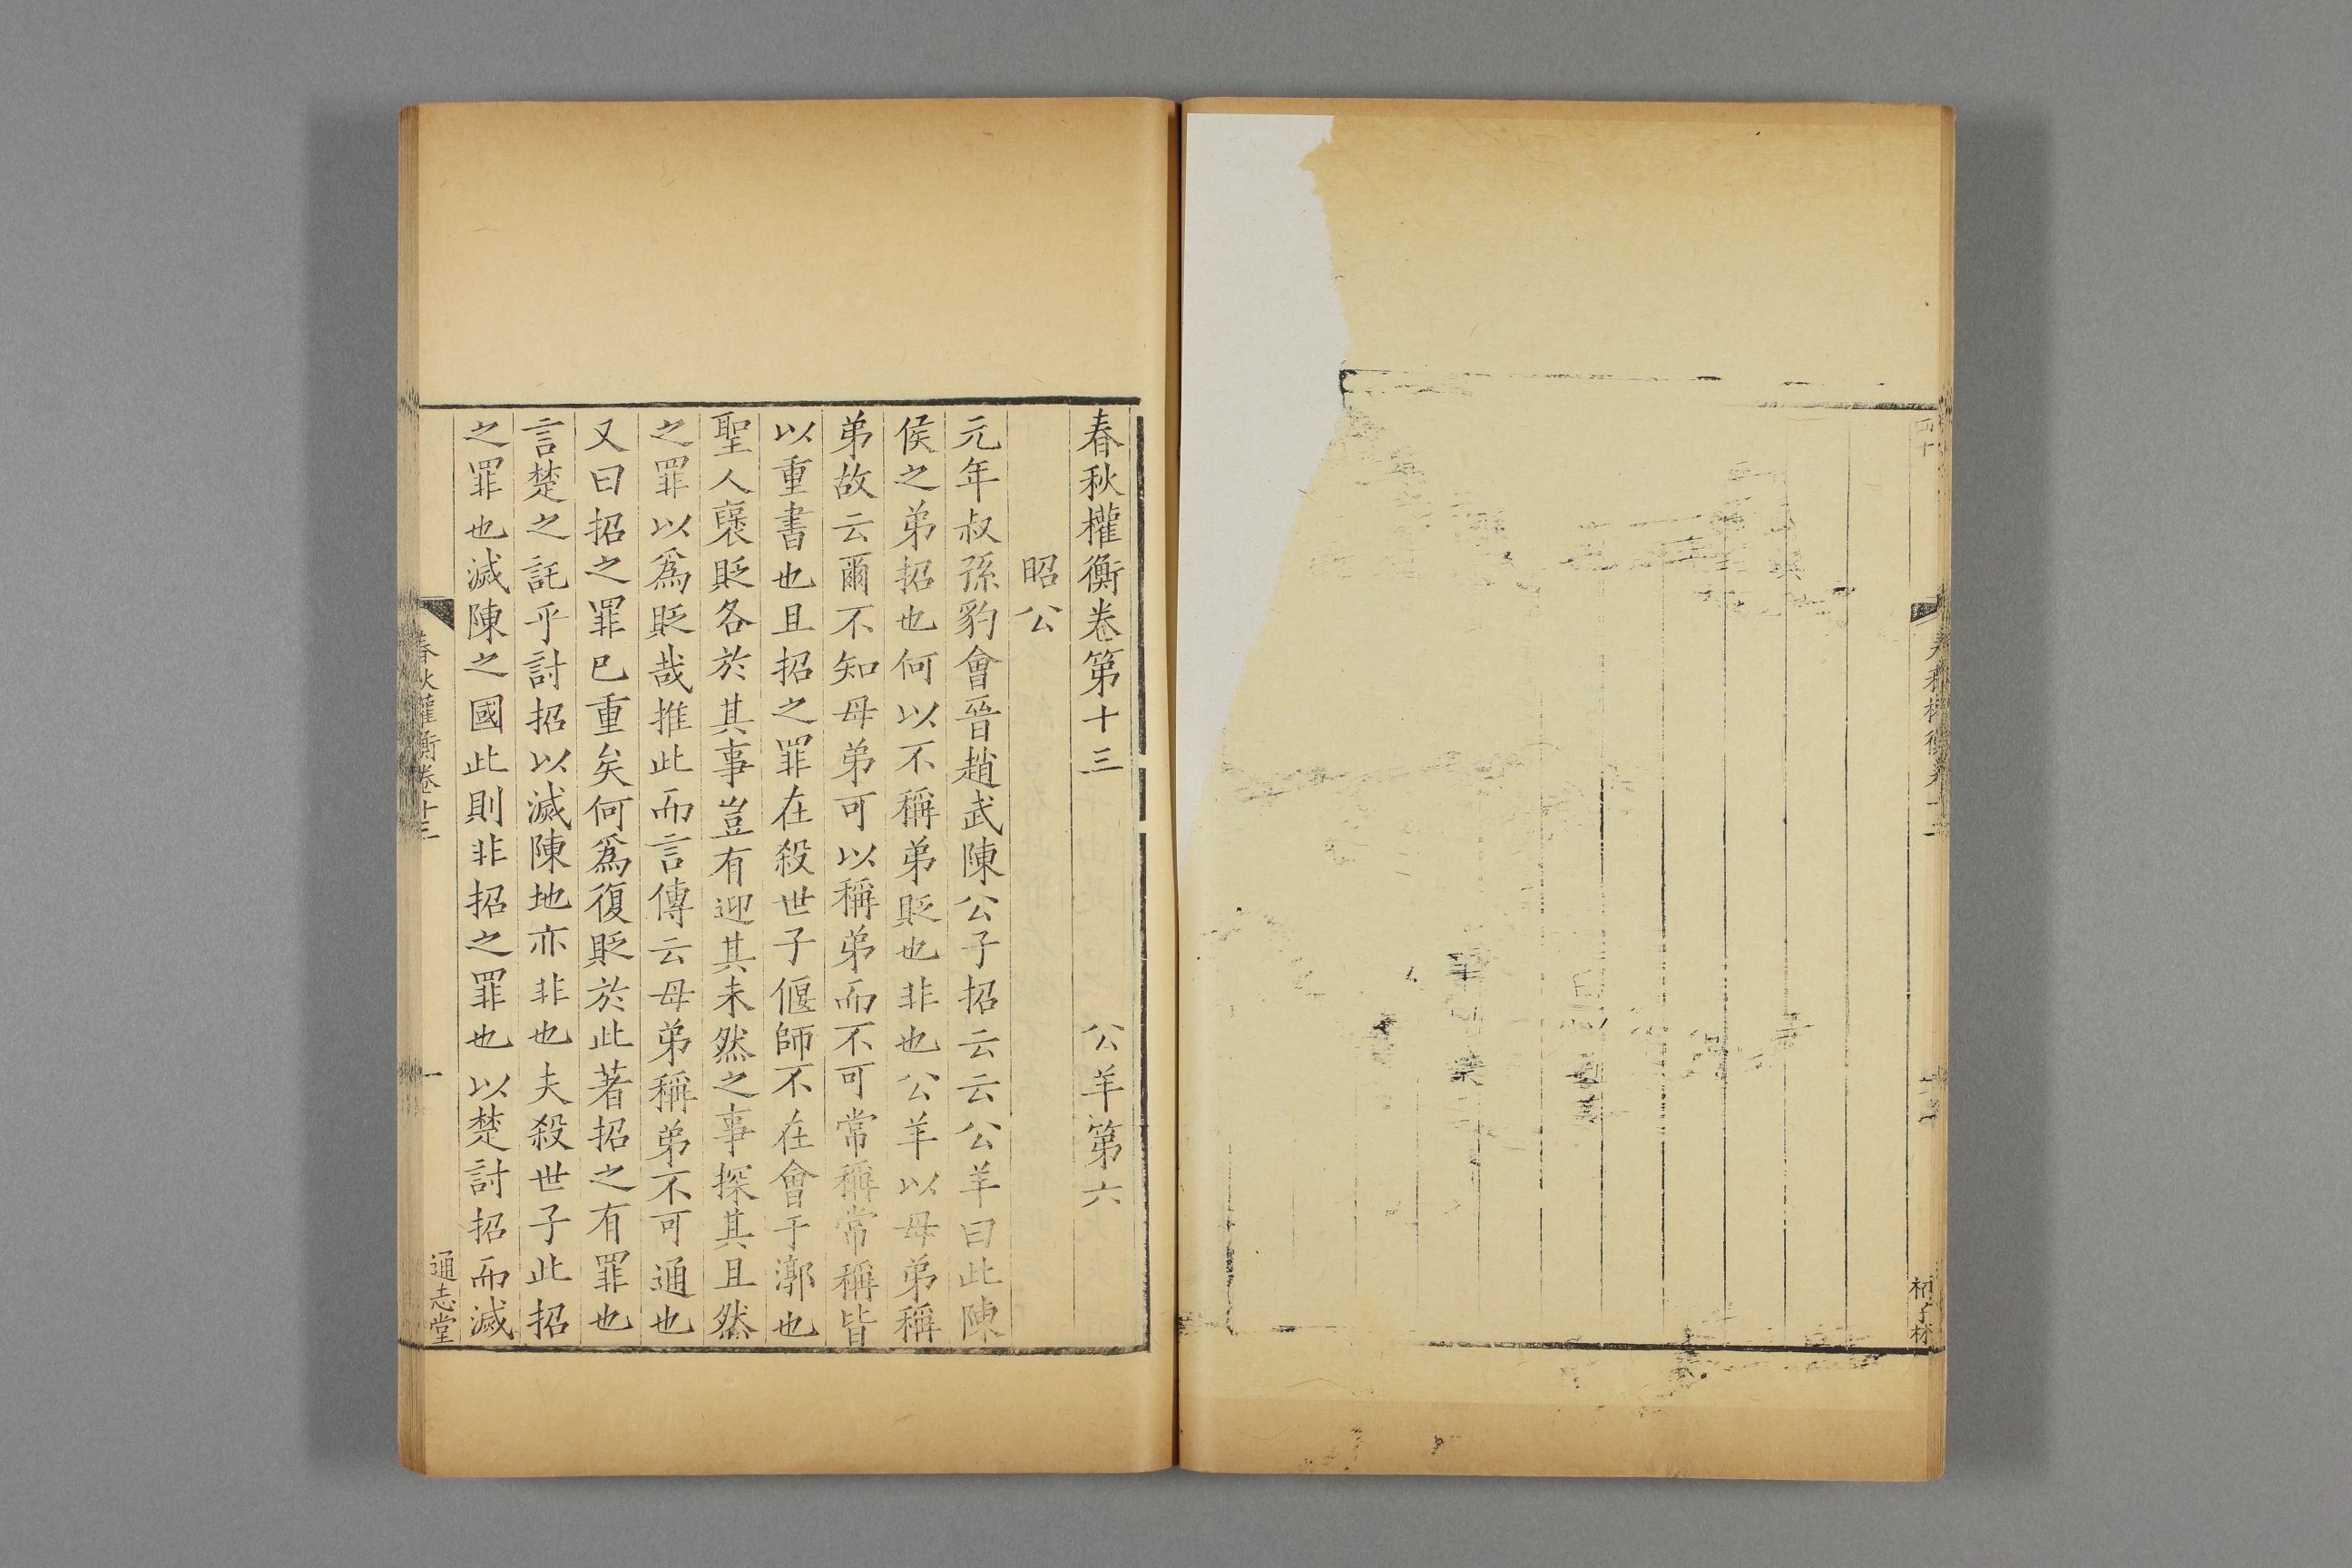 春秋權衡卷第十三　公羊第六
昭公
元年叔孫豹會晉趙武陳公子招云云公羊曰此陳
侯之弟招也何以不稱弟貶也非也公羊以母弟稱
弟故云爾不知母弟可以稱弟而不可常稱常稱皆
以重書也且招之罪在殺世子偃師不在會于漷也
聖人襃貶各於其事豈有迎其未然之事探其且然
之罪以爲貶哉推此而言傳云母弟稱弟不可通也
又曰招之罪已重矣何爲復貶於此著招之有罪也
言楚之託乎討招以滅陳地亦非也夫殺世子此招
之罪也滅陳之國此則非招之罪也以楚討招而滅
春秋權衡卷十三
一
通志堂